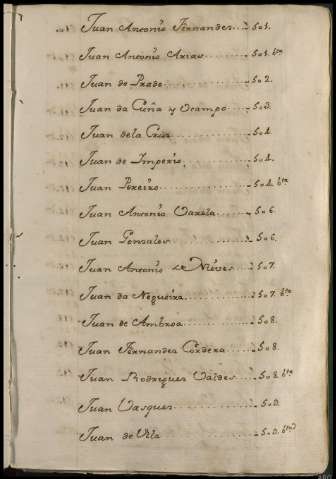 Juan Antonio Fernandes 501.
Juan Antonio Arias 501. bta
Juan de Prado 502.
Juan da Cuña y Ocampo 503.
Juan de la Cruz 504.
Juan de Imperio 504.
Juan Pereiro 504. bta
Juan Antonio Varela 506.
Juan Gonsales 506.
Juan Antonio de Nieves 507.
Juan da Negueira 507. bta
Juan de Ambroa 508.
Juan Fernandes Cordera 508.
Juan Rodrigues Valdes 508. bta
Juan Vasques 509.
Juan de Vila 509. bta